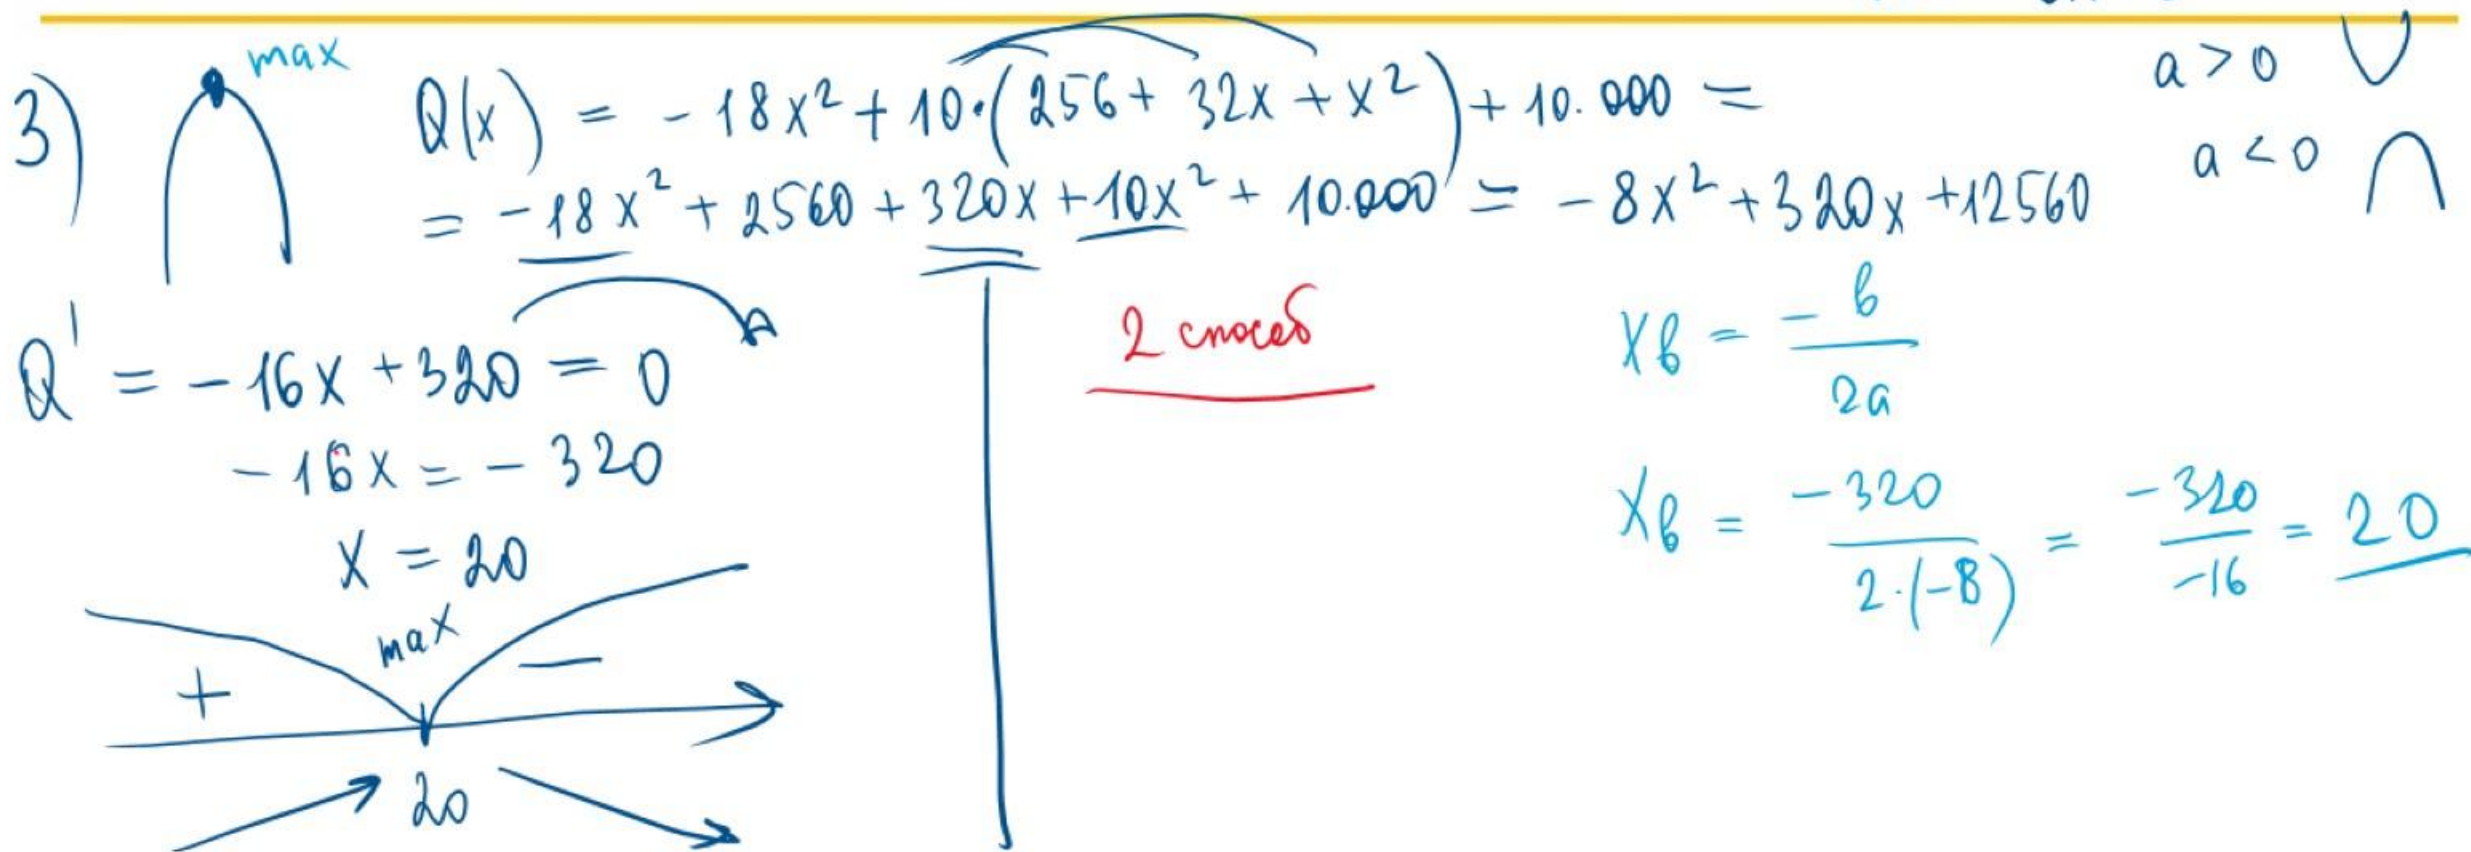 3) max Q(x) = - 18x² + 10·(256 + 32x + x²) + 10.000 =
= -18x² + 2560 + 320x + 10x² + 10.000 = - 8x² + 320x + 12560
a > 0
a < 0
Q' = - 16x + 320 = 0
- 16x = - 320
x = 20
max
+ −
20
2 способ
xв = -в/2a
xв = -320/2·(-8) = -320/-16 = 20